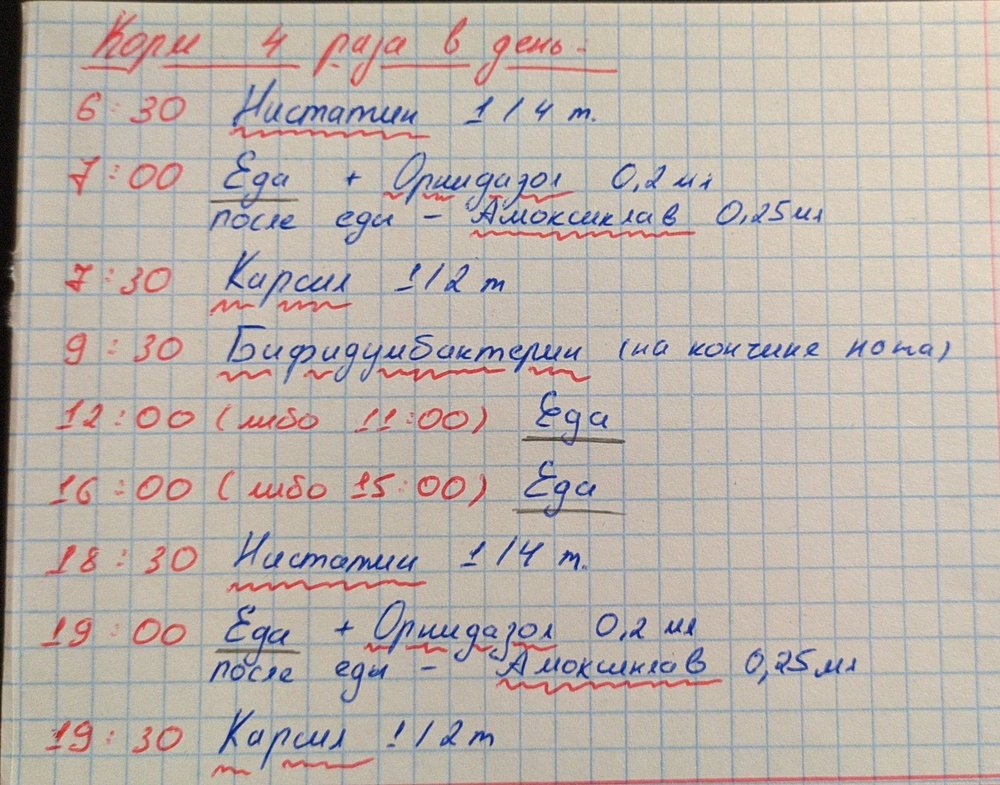 Корм 4 раза в день.
6:30 Нистатин 1/4 т.
7:00 Еда + Орнидазол 0,2 мл
после еды - Амоксиклав 0,25 мл
7:30 Карсил 1/2 т
9:30 Бифидумбактерин (на кончике ножа)
12:00 (либо 11:00) Еда
16:00 (либо 15:00) Еда
18:30 Нистатин 1/4 т.
19:00 Еда + Орнидазол 0,2 мл
после еды - Амоксиклав 0,25 мл
19:30 Карсил 1/2 т